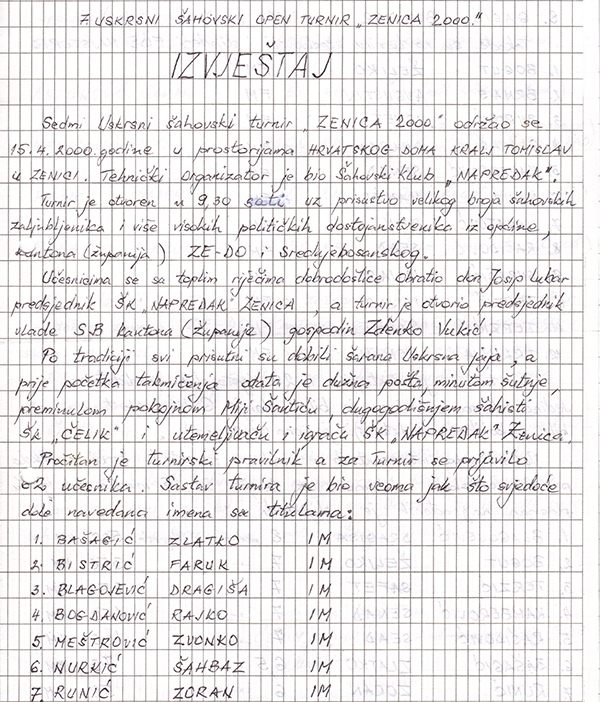 7. USKRSNI ŠAHOVSKI OPEN TURNIR „ZENICA 2000."
IZVJEŠTAJ
Sedmi Uskrsni šahovski turnir „ZENICA 2000." održao se
15.4.2000.godine u prostorijama HRVATSKOG DOMA KRALJ TOMISLAV
u ZENICI. Tehnički organizator je bio Šahovski klub „NAPREDAK".
Turnir je otvoren u 9,30 sati uz prisustvo velikog broja šahovskih
zaljubljenika i više visokih političkih dostojanstvenika iz općine,
kantona (županija) ZE-DO i Srednjebosanskog.
Učesnicima se sa toplim riječima dobrodošlice obratio don Josip Lubar
predsjednik ŠK „NAPREDAK" ZENICA, a turnir je otvorio predsjednik
vlade SB kantona (županije) gospodin Zdenko Vukić.
Po tradiciji svi prisutni su dobili šarana Uskrsna jaja, a
prije početka takmičenja odata je dužna pošta, minutom šutnje,
preminulom pokojnom Miji Šantiću, dugogodišnjem šahisti
ŠK „ČELIK" i utemeljivaču i igraču ŠK „NAPREDAK" Zenica.
Pročitan je turnirski pravilnik a za Turnir se prijavilo
učesnika. Sastav turnira je bio veoma jak što svjedoče
dole navedana imena sa titulama:
1. BAŠAGIĆ ZLATKO IM
2. BISTRIĆ FARUK IM
3. BLAGOJEVIĆ DRAGIŠA IM
4. BOGDANOVIĆ RAJKO IM
5. MEŠTROVIĆ ZVONKO IM
6. NURKIĆ ŠAHBAZ IM
7. RUNIĆ ZORAN IM